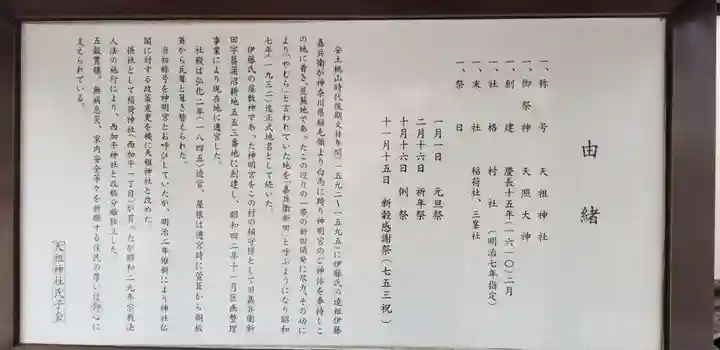 由緒
一、称号 天祖神社
一、御祭神 天照大神
一、創建 慶長十五年(一六一〇)二月
一、社格 村社(明治七年指定)
一、末社 稲荷社、三峯社
一、祭日
一月一日 元旦祭
二月十六日 祈年祭
十月十六日 例祭
十一月十五日 新穀感謝祭(七五三祝)
安土桃山時代後期文禄年間(一五九二〜一五九五)に伊藤氏の遠祖伊藤
嘉兵衛が神奈川県稲毛領より白馬に跨り神明宮のご神体を奉持しこ
の地に着き、荒蕪地であったこの辺りの一帯の新田開発に尽力、その功に
より「やむら」と言われていた地を「嘉兵衛新田」と呼ぶようになり昭和
七年(一九三二)迄正式地名として続いた。
伊藤氏の屋敷神であった神明宮をこの村の鎮守様として旧嘉兵衛新
田字菖蒲沼耕地五五三番地に創建し、昭和四二年十一月区画整理
事業により現在地に遷宮した。
社殿は弘化二年(一八四五)造営、屋根は遷宮時に萱葺から銅板
葺から瓦葺と葺き替えられた。
当初称号を神明宮とお呼びしていたが、明治二年維新により神社仏
閣に対する政策変更を機に天祖神社と改めた。
摂社として稲荷神社(西加平一丁目)が有ったが昭和二九年宗教法
人法の施行により、西加平神社と改称分離独立した。
五穀豊穣、無病息災、家内安全等々を祈願する住民の厚い信仰心に
支えられている。
天祖神社氏子会